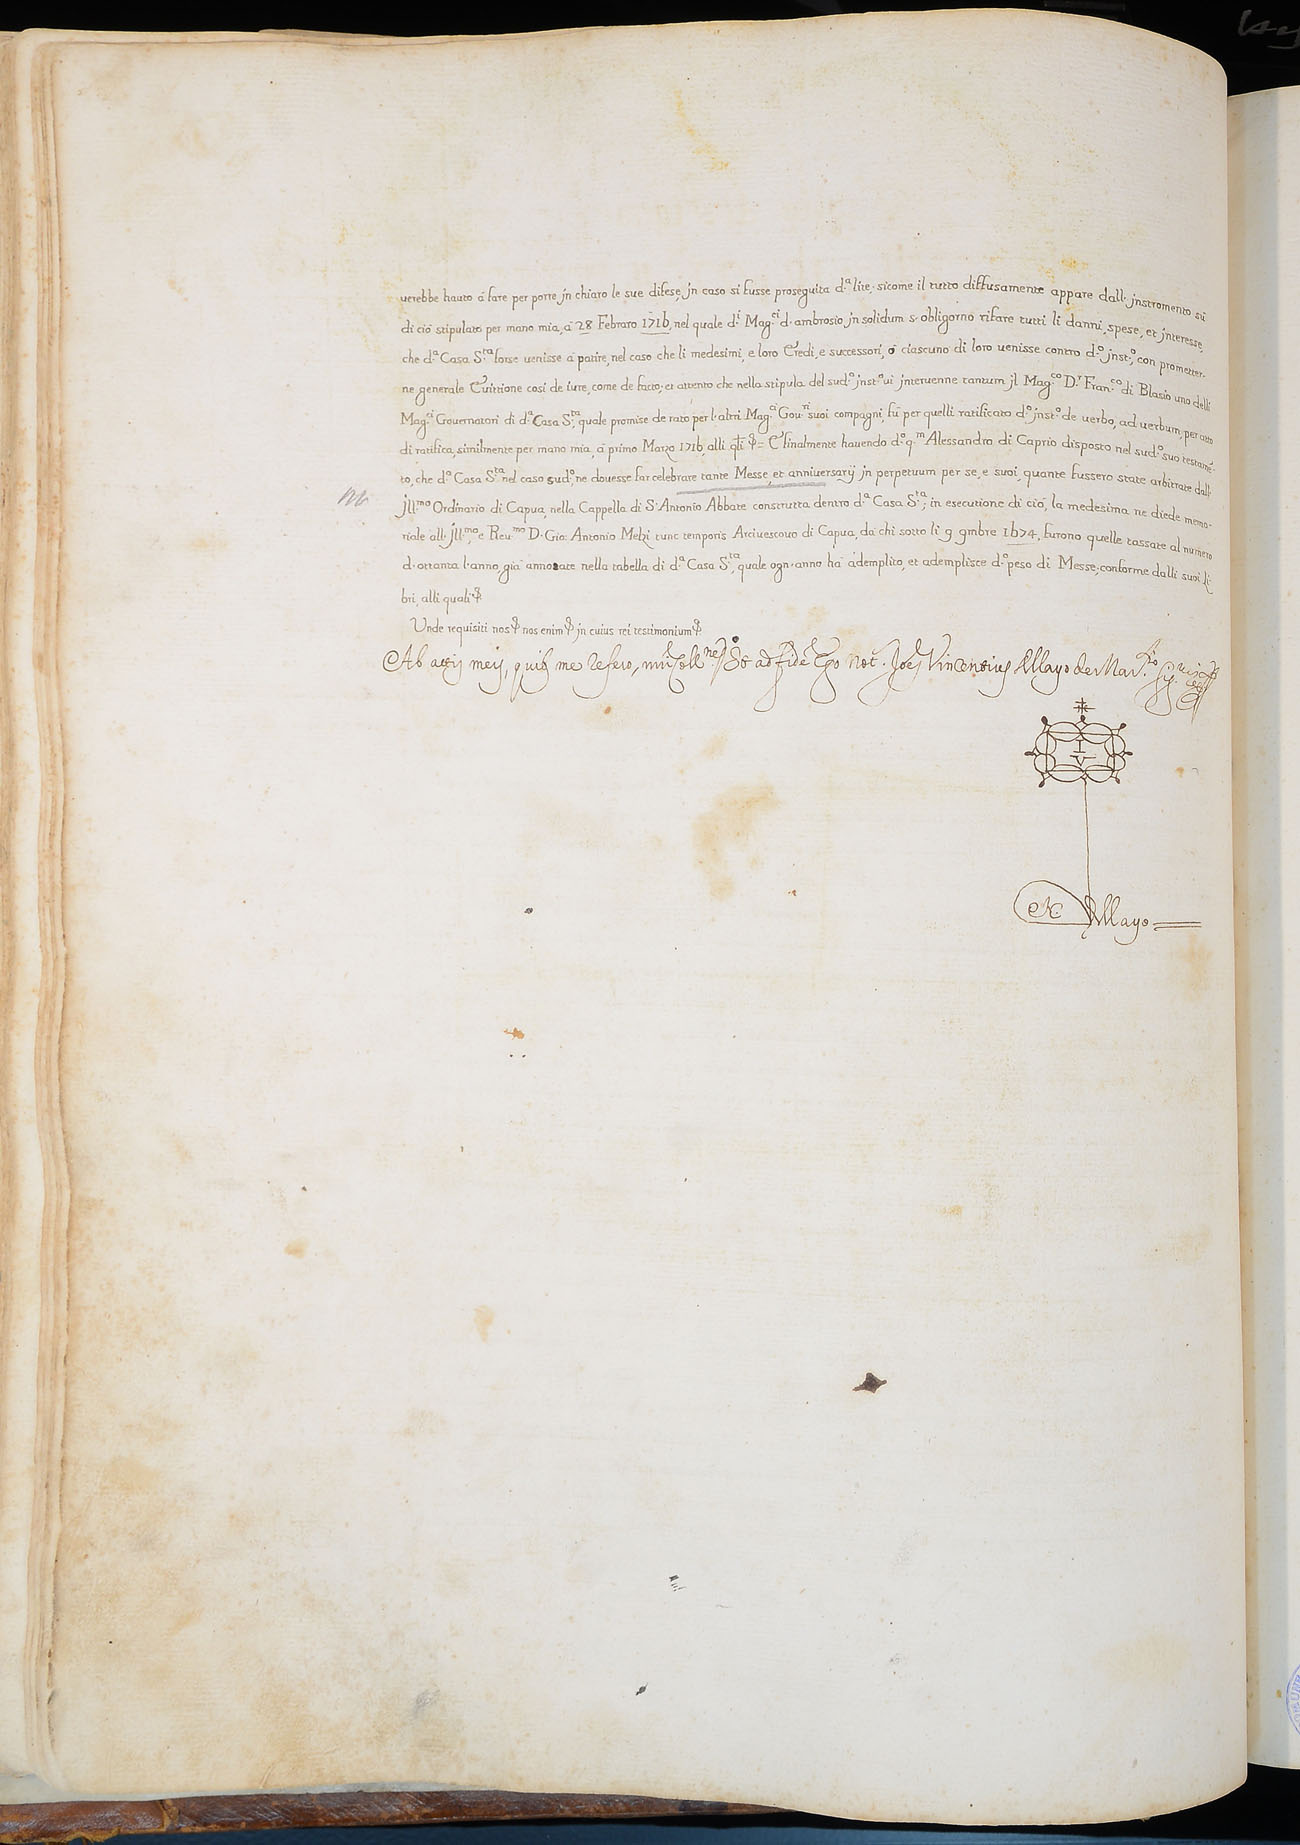 uerebbe hauto à fare per porre jn chiaro le sue difese, jn caso si fusse proseguita d.ª lite; sicome il tutto diffusamente appare dall' jnstromento sù
di ciò stipulato per mano mia, à 28 Febraro 1716, nel quale d.i Mag.ci d'ambrosio jn solidum s'obligorno rifare tutti li danni, spese, et jnteresse,
che d.ª Casa S.ta forse uenisse à patire, nel caso che li medesimi, e loro Eredi, e successori, ò ciascuno di loro uenisse contro d.o jnst.o, con prometter=
ne generale Euittione così de iure, come de facto; et attento che nella stipula del sud.o jnst.o ui jnteruenne tantum jl Mag.co D.r Fran.co di Blasio uno delli
Mag.ci Gouernatori di d.ª Casa S.ta, quale promise de rato per l'altri Mag.ci Gou.ri suoi compagni, fù per quelli ratificato d.o jnst.o de verbo, ad verbum, per atto
di ratifica, similmente per mano mia, à primo Marzo 1716, alli q̃li &= E finalmente hauendo d.o q.m Alessandro di Caprio disposto nel sud.o suo testamẽ=
to, che d.ª Casa S.ta nel caso sud.o, ne douesse far celebrare tante Messe, et anniuersarÿ jn perpetuum per se, e suoi, quante fussero state arbitrate dall'
jll.mo Ordinario di Capua, nella Cappella di S. Antonio Abbate construtta dentro d.ª Casa S.ta; in esecutione di ciò, la medesima ne diede memo=
riale all' jll.mo, e Reu.mo D. Gio: Antonio Melzi tunc temporis Arciuescouo di Capua, da chi sotto li 9 9mbre 1674, furono quelle tassate al numero
d'ottanta l'anno, già annotate nella tabella di d.ª Casa S.ta, quale ogn'anno hà ademplito, et ademplisce d.o peso di Messe, conforme dalli suoi li=
bri, alli quali &
Unde requisiti nos & nos enim & jn cuius rei testimonium &
Ab actis meis, quibus me refero, Et ad fidẽ Ego Not. Joẽs Vincentius Mayo de Mar.
I
V
Mayo